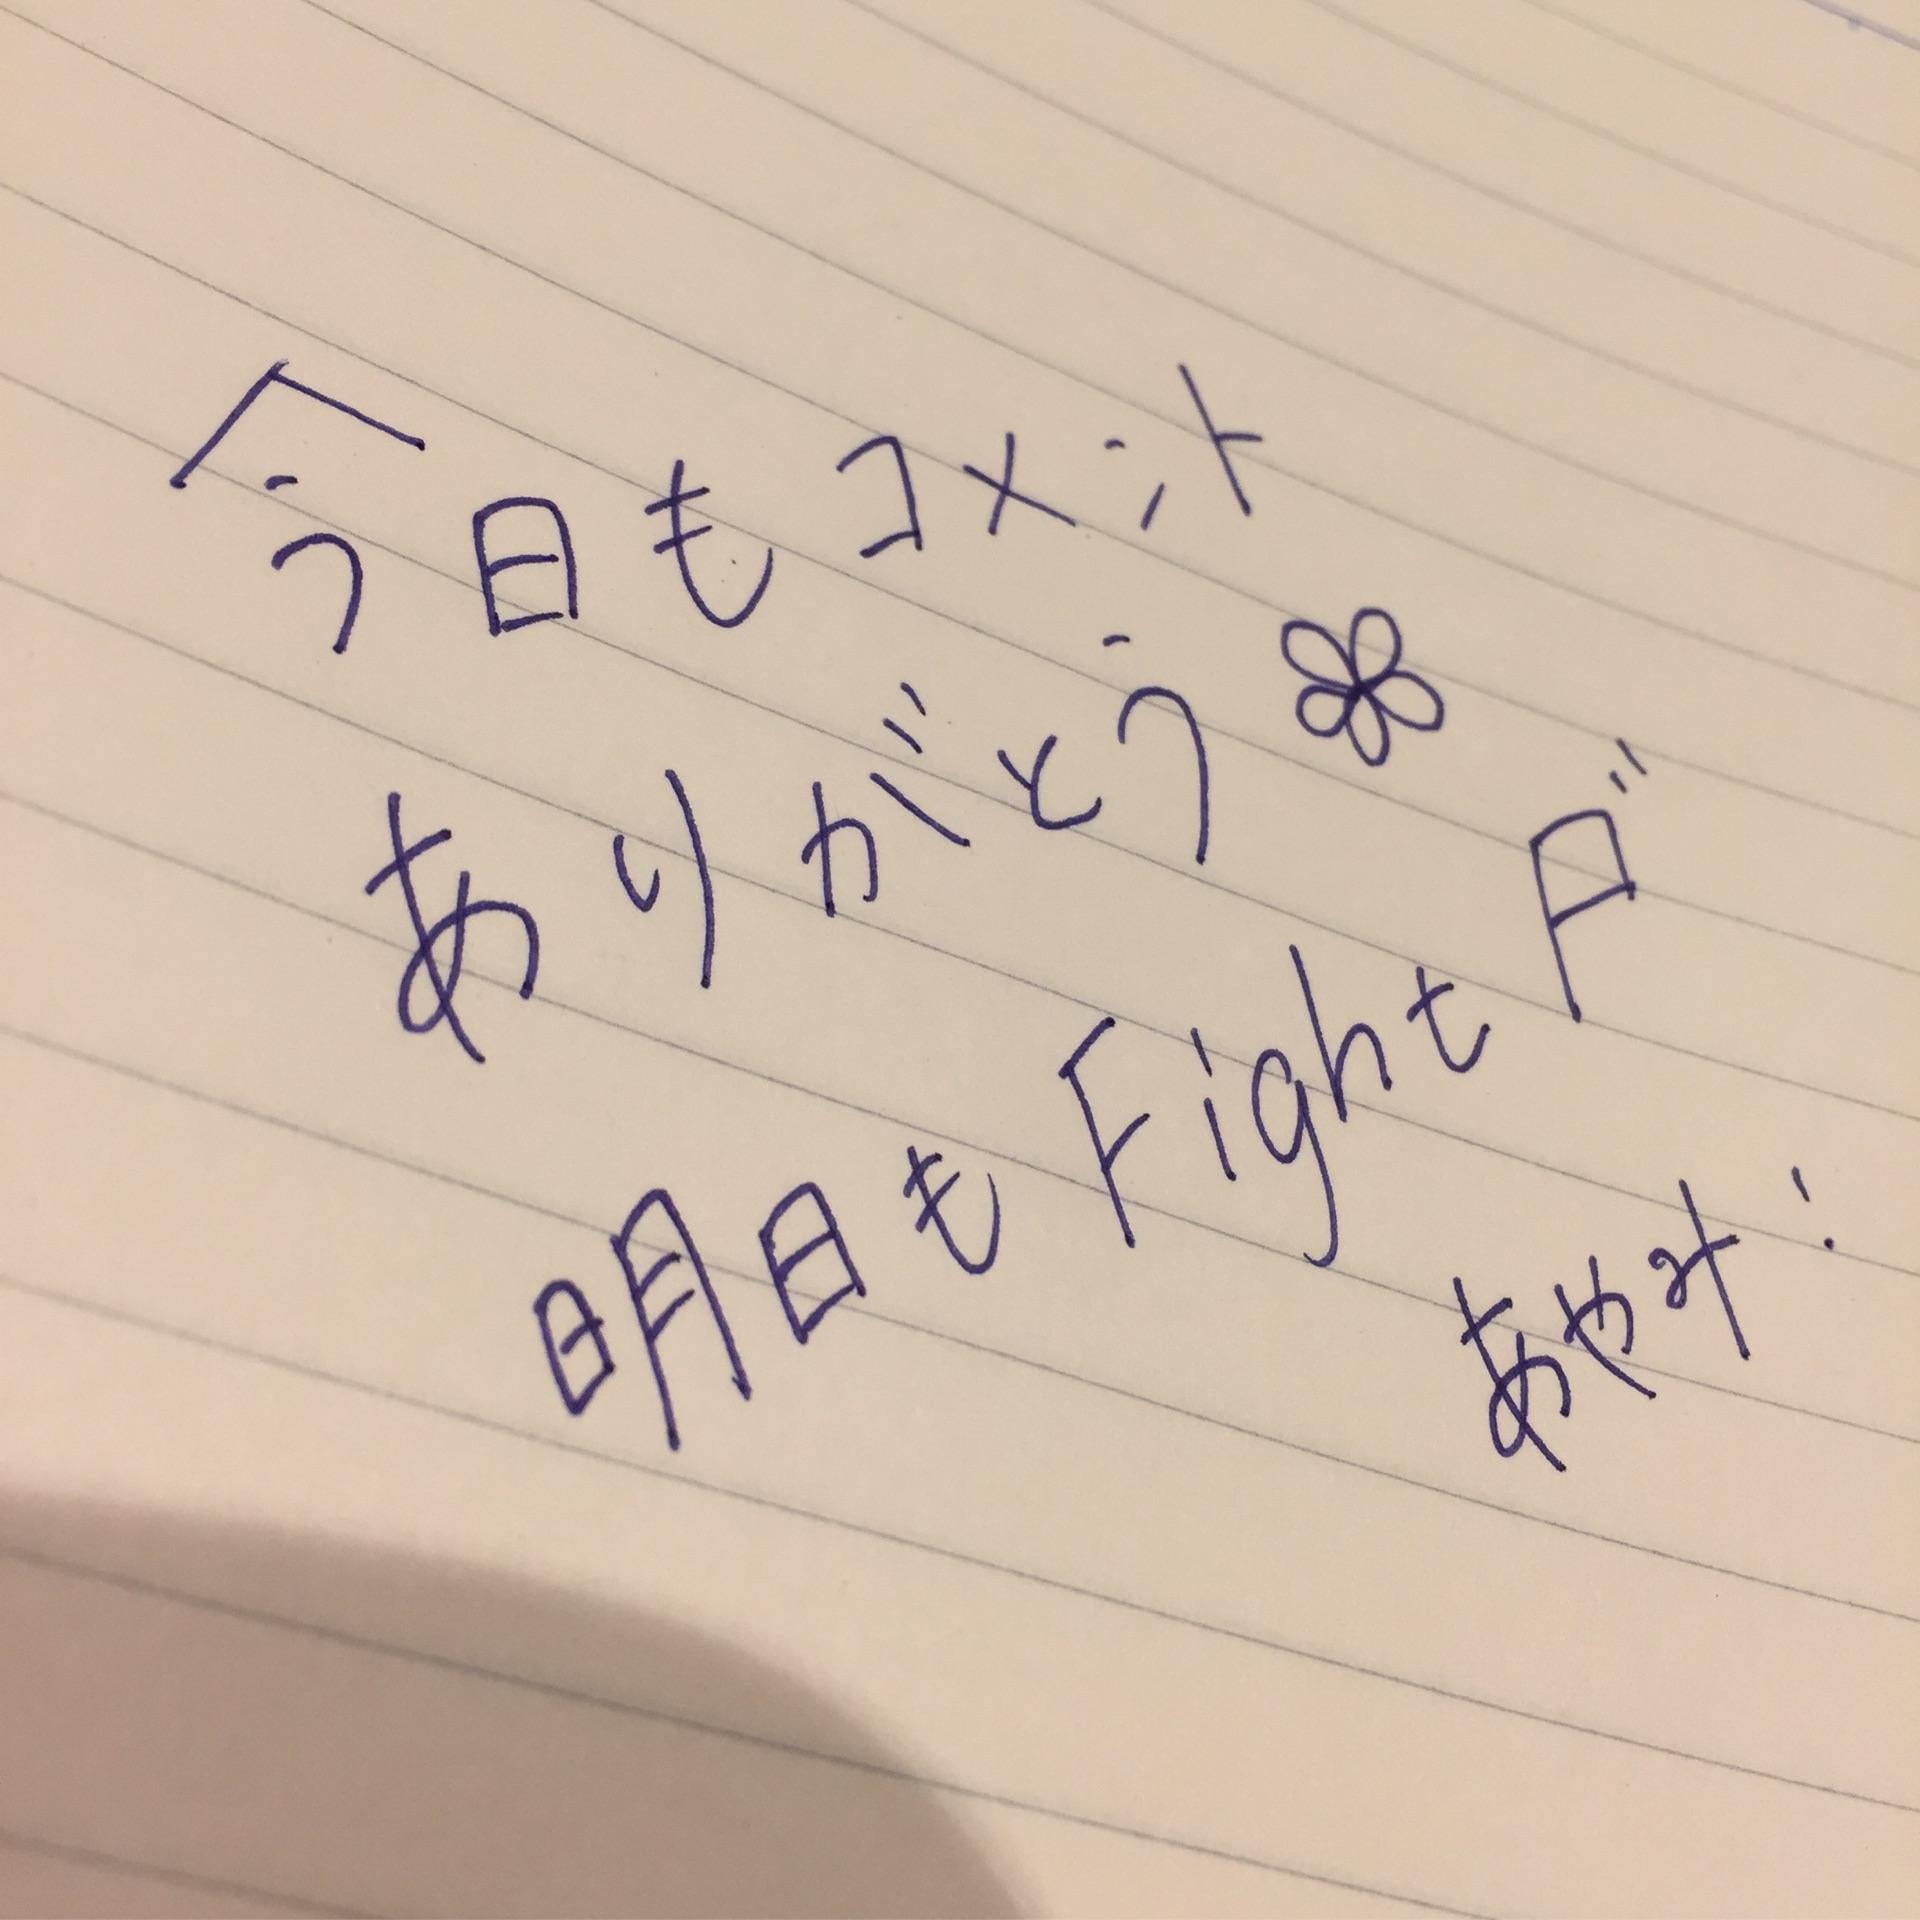 今日もコメント
ありがとう
明日もFight
あやみ!